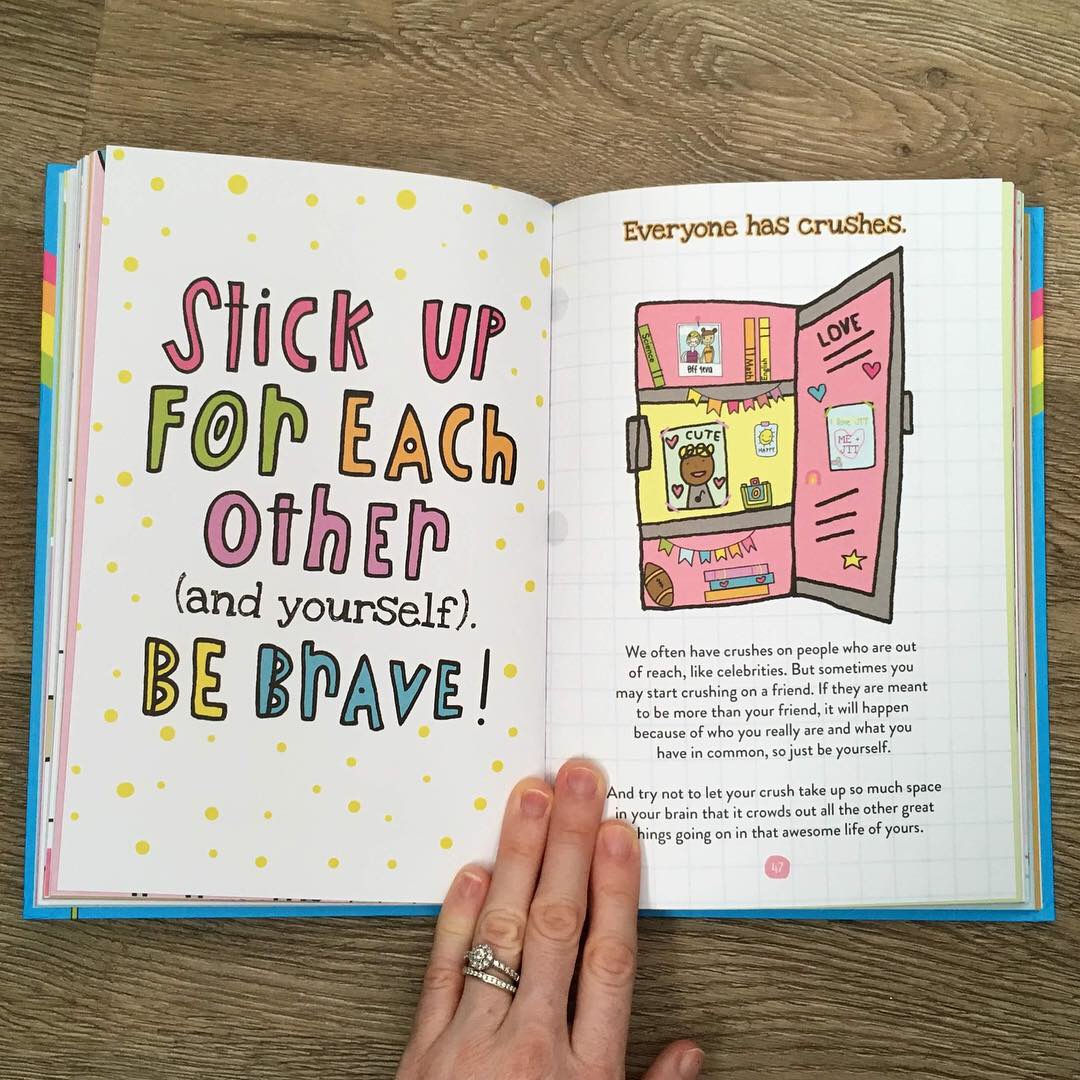 Stick up
for Each
other
(and yourself).
BE Brave!
Everyone has crushes.
LOVE
Science
Bff 4eva
Math
English
CUTE
HAPPY
I love JTT
ME +
JTT
We often have crushes on people who are out
of reach, like celebrities. But sometimes you
may start crushing on a friend. If they are meant
to be more than your friend, it will happen
because of who you really are and what you
have in common, so just be yourself.
And try not to let your crush take up so much space
in your brain that it crowds out all the other great
hings going on in that awesome life of yours.
47